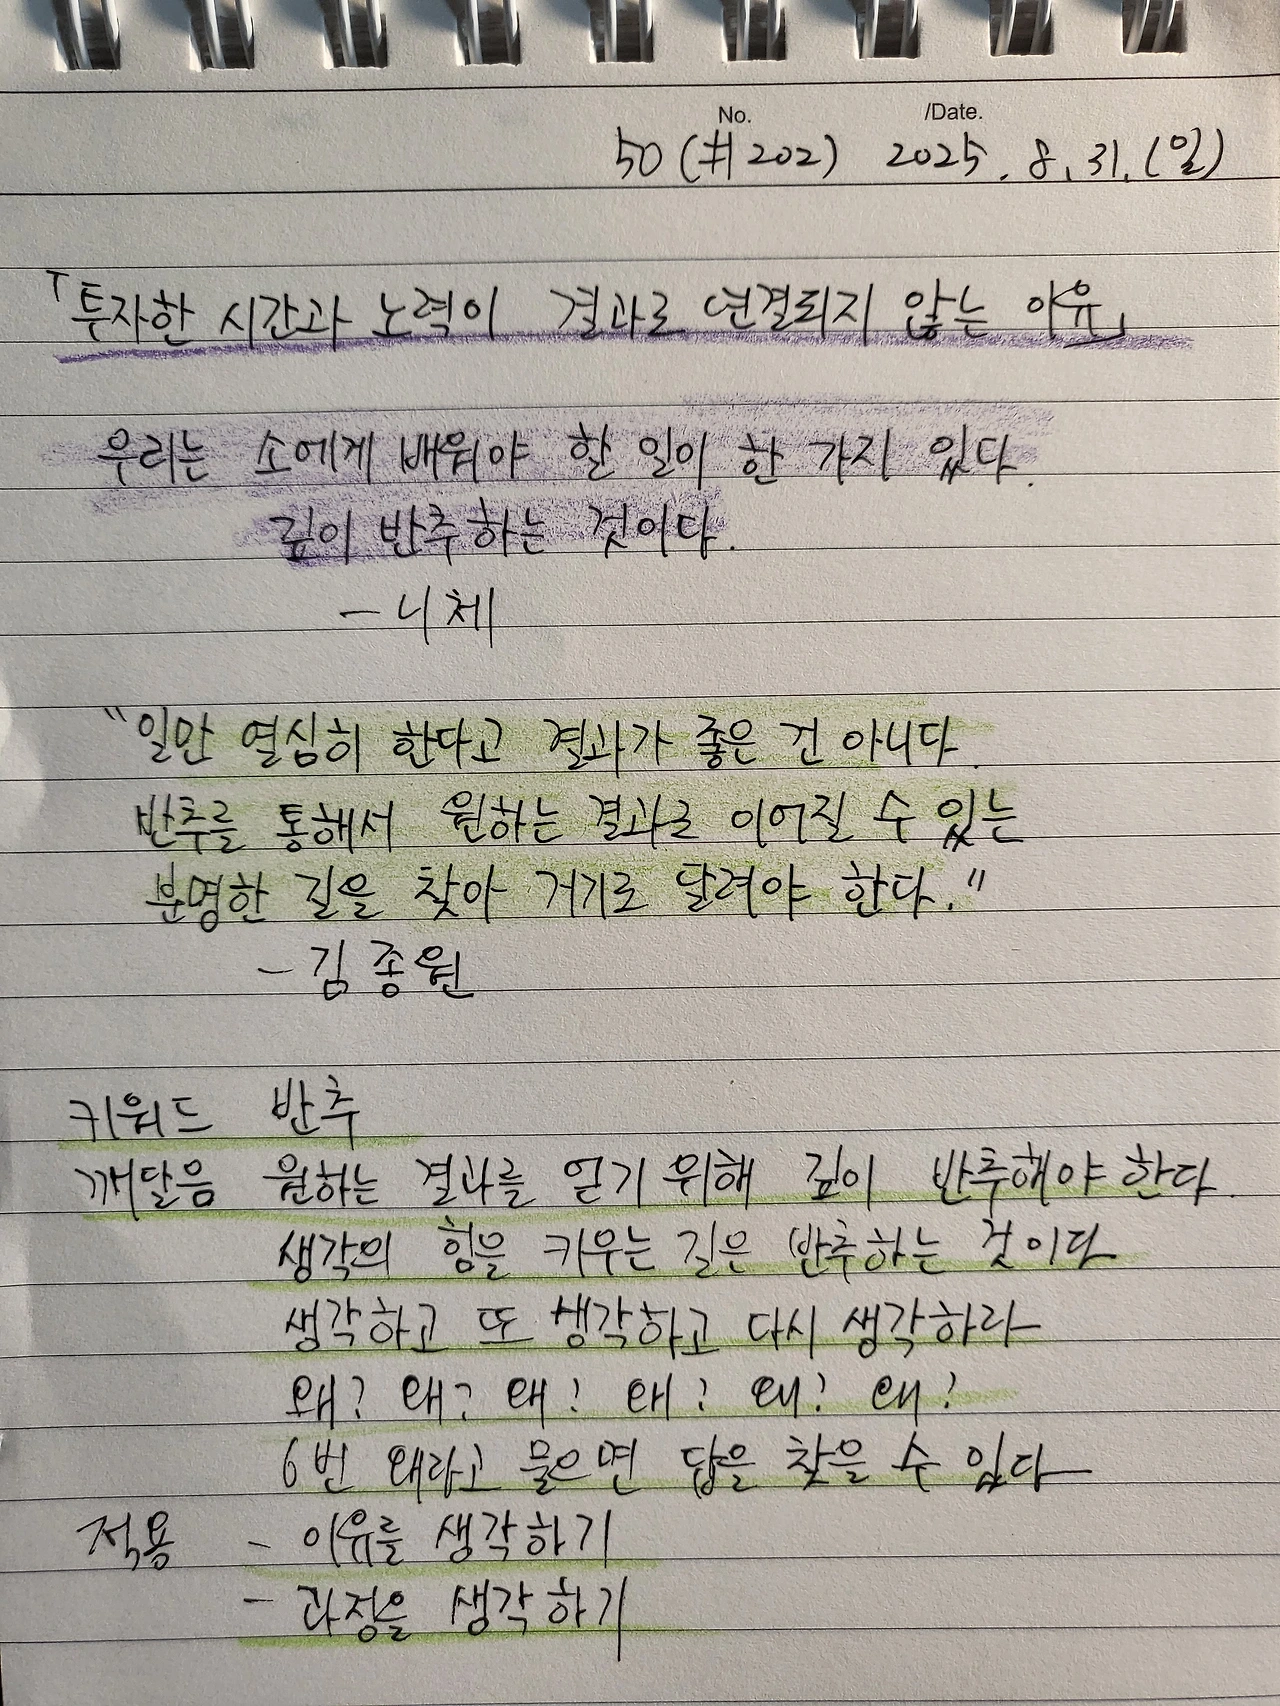 No. /Date.
50 (#202) 2025. 8. 31. (일)
「투자한 시간과 노력이 결과로 연결되지 않는 이유」
우리는 소에게 배워야 할 일이 한 가지 있다.
깊이 반추하는 것이다.
- 니체
"일만 열심히 한다고 결과가 좋은 건 아니다.
반추를 통해서 원하는 결과로 이어질 수 있는
분명한 길을 찾아 거기로 달려야 한다."
- 김종원
키워드 반추
깨달음 원하는 결과를 얻기 위해 깊이 반추해야 한다.
생각의 힘을 키우는 길은 반추하는 것이다
생각하고 또 생각하고 다시 생각하라
왜? 왜? 왜? 왜? 왜? 왜?
6번 왜라고 물으면 답을 찾을 수 있다
적용 - 이유를 생각하기
- 과정을 생각하기